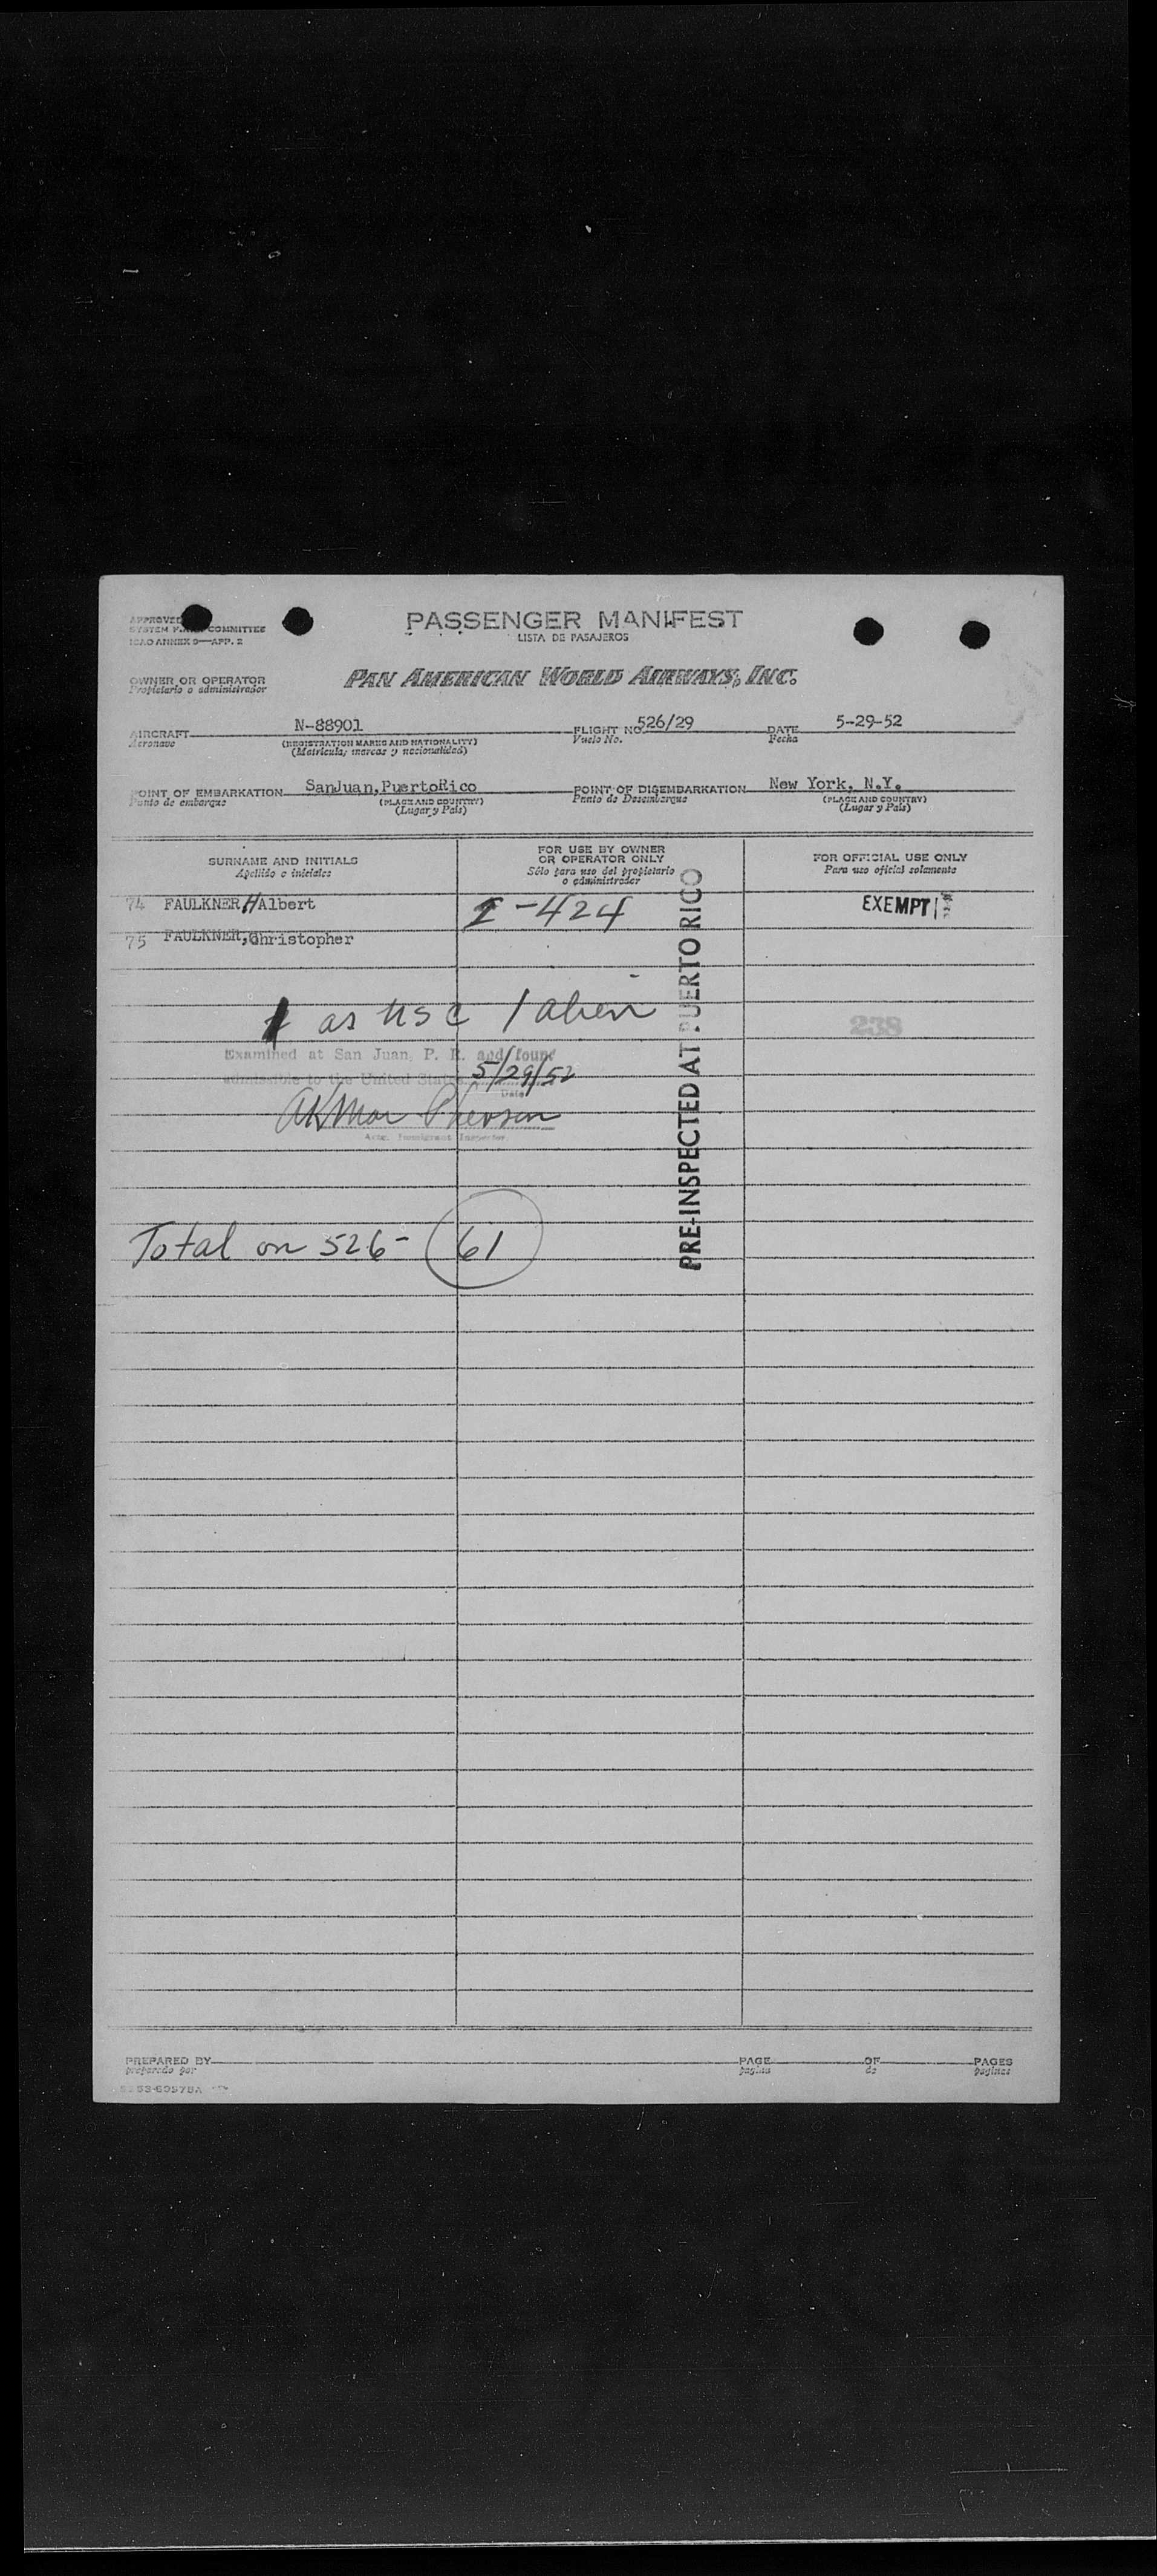 PASSENGER MANIFEST
LISTA DE PASAJEROS
APPROVED
SYSTEM COMMITTEE
ICAO ANNEX 9—APP. 2
PAN AMERICAN WORLD AIRWAYS, INC.
OWNER OR OPERATOR
Propietario o administrador
AIRCRAFT N-88901 FLIGHT NO. 526/29 DATE 5-29-52
Aeronave (REGISTRATION MARKS AND NATIONALITY) Vuelo No. Fecha
(Matrícula, marcas y nacionalidad)
POINT OF EMBARKATION SanJuan,PuertoRico POINT OF DISEMBARKATION New York, N.Y.
Punto de embarque (PLACE AND COUNTRY) Punto de Desembarque (PLACE AND COUNTRY)
(Lugar y País) (Lugar y País)
SURNAME AND INITIALS
Apellido e iniciales
FOR USE BY OWNER
OR OPERATOR ONLY
Sólo para uso del propietario
o administrador
FOR OFFICIAL USE ONLY
Para uso oficial solamente
74 FAULKNER, Albert I-424 EXEMPT
75 FAULKNER, Christopher
1 as USC 1 alien
238
Examined at San Juan, P. R. and found
admissible to the United States 5/29/52
Date
Actg. Immigrant Inspector
PRE-INSPECTED AT PUERTO RICO
Total on 526- 61
PREPARED BY PAGE OF PAGES
preparado por página de páginas